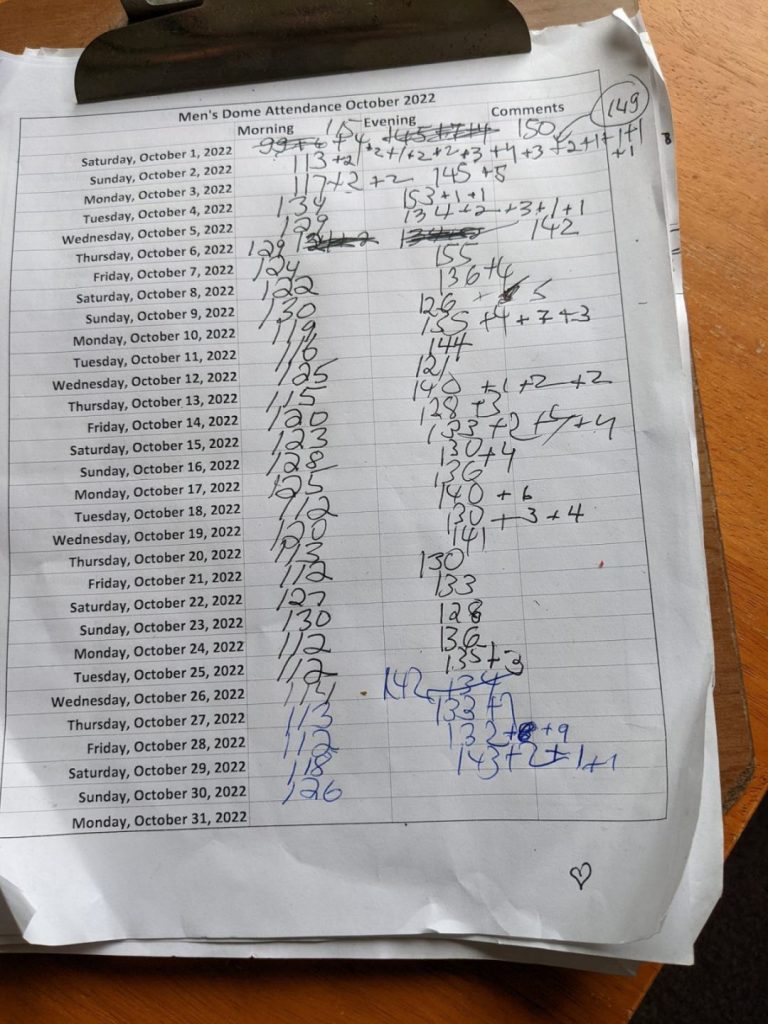 Men's Dome Attendance October 2022
Morning Evening Comments
149
Saturday, October 1, 2022 +4 115 145+7+4 150
Sunday, October 2, 2022 113+2 +2+1+2+2+3+4+3+2+1+1+1
+1
Monday, October 3, 2022 117+2+2 145+5
Tuesday, October 4, 2022 134 153+1+1
Wednesday, October 5, 2022 129 134+2+3+1+1
Thursday, October 6, 2022 129 142
Friday, October 7, 2022 124 155
Saturday, October 8, 2022 122 136+4
Sunday, October 9, 2022 130 126 + 5
Monday, October 10, 2022 119 135+4+7+3
Tuesday, October 11, 2022 116 144
Wednesday, October 12, 2022 125 121
Thursday, October 13, 2022 115 140+1+2+2
Friday, October 14, 2022 120 128+3
Saturday, October 15, 2022 123 133+2+5+4
Sunday, October 16, 2022 128 130+4
Monday, October 17, 2022 125 136
Tuesday, October 18, 2022 112 140+6
Wednesday, October 19, 2022 120 130+3+4
Thursday, October 20, 2022 113 141
Friday, October 21, 2022 112 130
Saturday, October 22, 2022 127 133
Sunday, October 23, 2022 130 128
Monday, October 24, 2022 112 136
Tuesday, October 25, 2022 112 135+3
Wednesday, October 26, 2022 142 134
Thursday, October 27, 2022 113 133+7
Friday, October 28, 2022 112 132+8+9
Saturday, October 29, 2022 118 143+2+1+1
Sunday, October 30, 2022 126
Monday, October 31, 2022